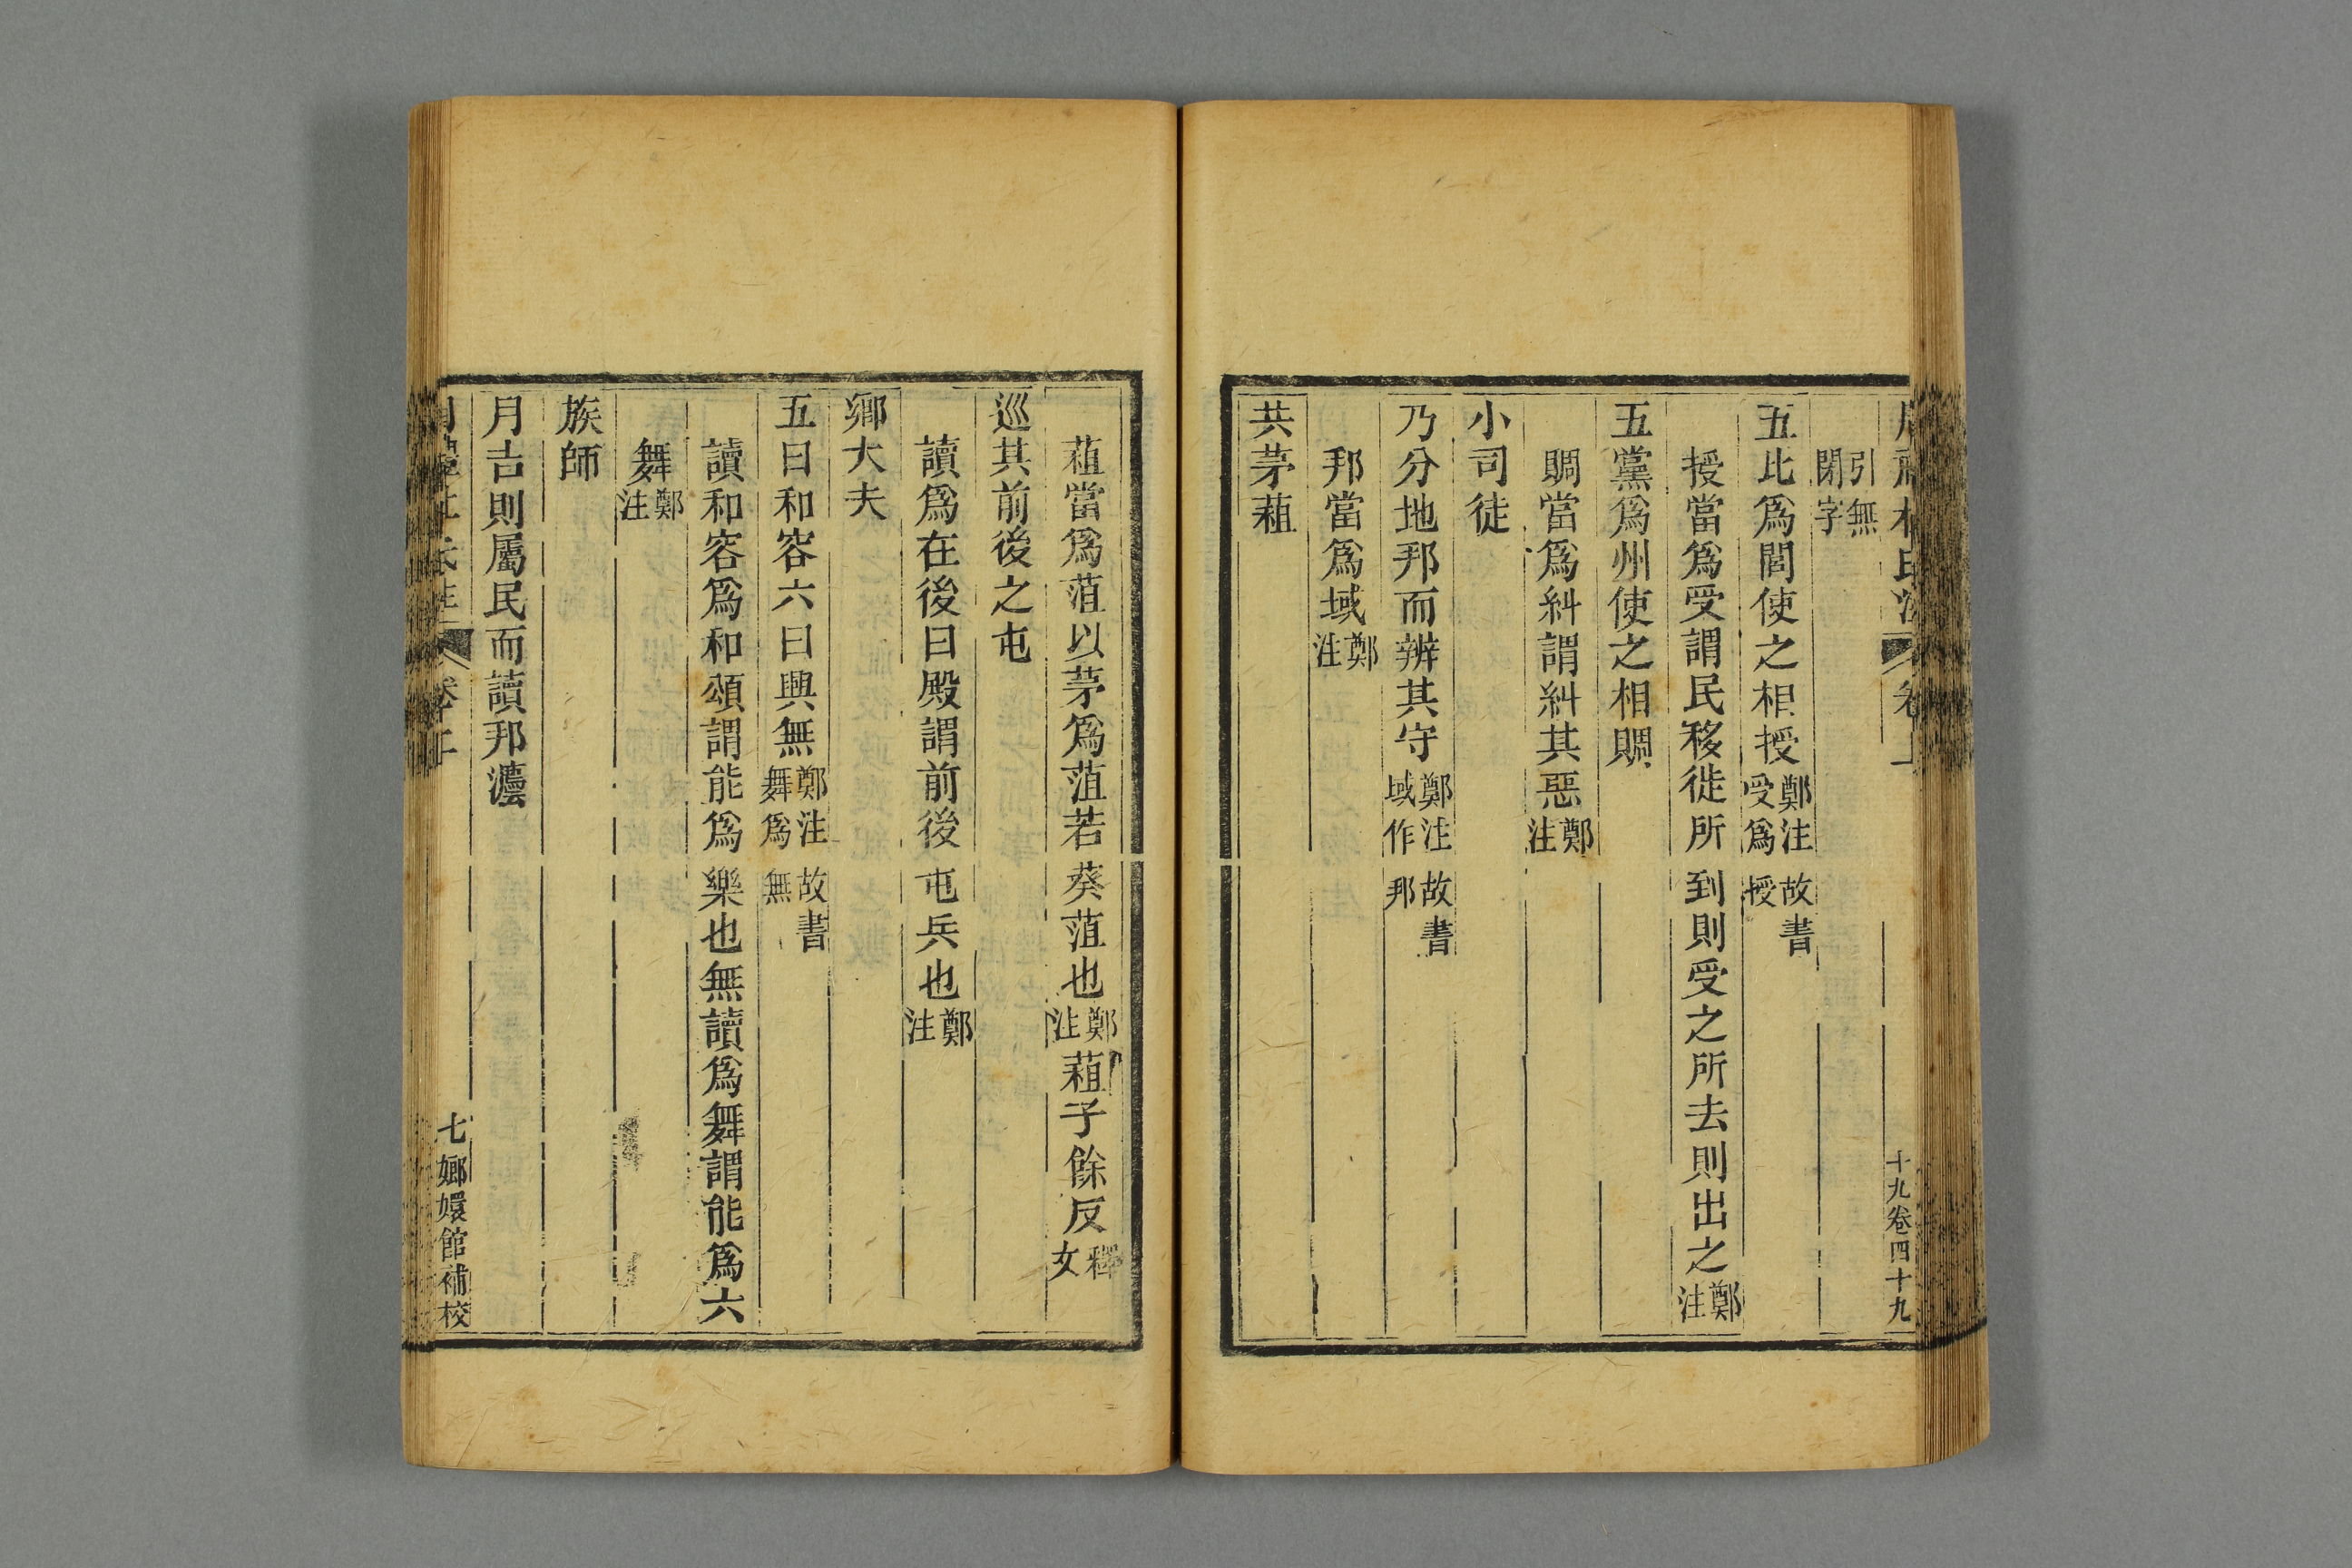 十九卷四十九
引無
閉字
五比爲閭使之相授鄭注故書受爲授
授當爲受謂民移徙所到則受之所去則出之鄭注
五黨爲州使之相賙
賙當爲糾謂糾其惡鄭注
小司徒
乃分地邦而辨其守鄭注故書域作邦
邦當爲域鄭注
共茅蒩
蒩當爲菹以茅爲菹若葵菹也鄭注蒩子餘反釋文
巡其前後之屯
讀爲在後曰殿謂前後屯兵也鄭注
鄉大夫
五曰和容六曰興無鄭注故書舞爲無
讀和容爲和頌謂能爲樂也無讀爲舞謂能爲六
舞鄭注
族師
月吉則屬民而讀邦灋
七嫏嬛館補校